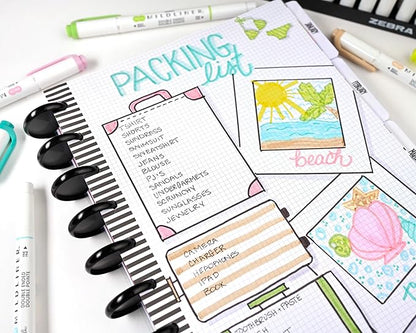 MILDLINER
ZEBRA
PACKING
list
T-SHIRT
SHORTS
SUNDRESS
SWIMSUIT
SWEATSHIRT
JEANS
BLOUSE
PJ'S
SANDALS
UNDERGARMETS
SCRUNCHY
SUNGLASSES
JEWELRY
beach
CAMERA
CHARGER
HEADPHONES
IPAD
BOOK
TOOTHBRUSH + PASTE
MILDLINER
DOUBLE ENDED